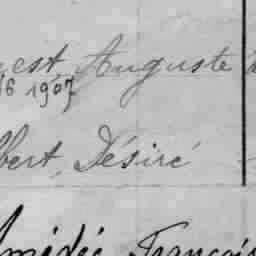 est Auguste
16 1907
bert, Désiré
médée François